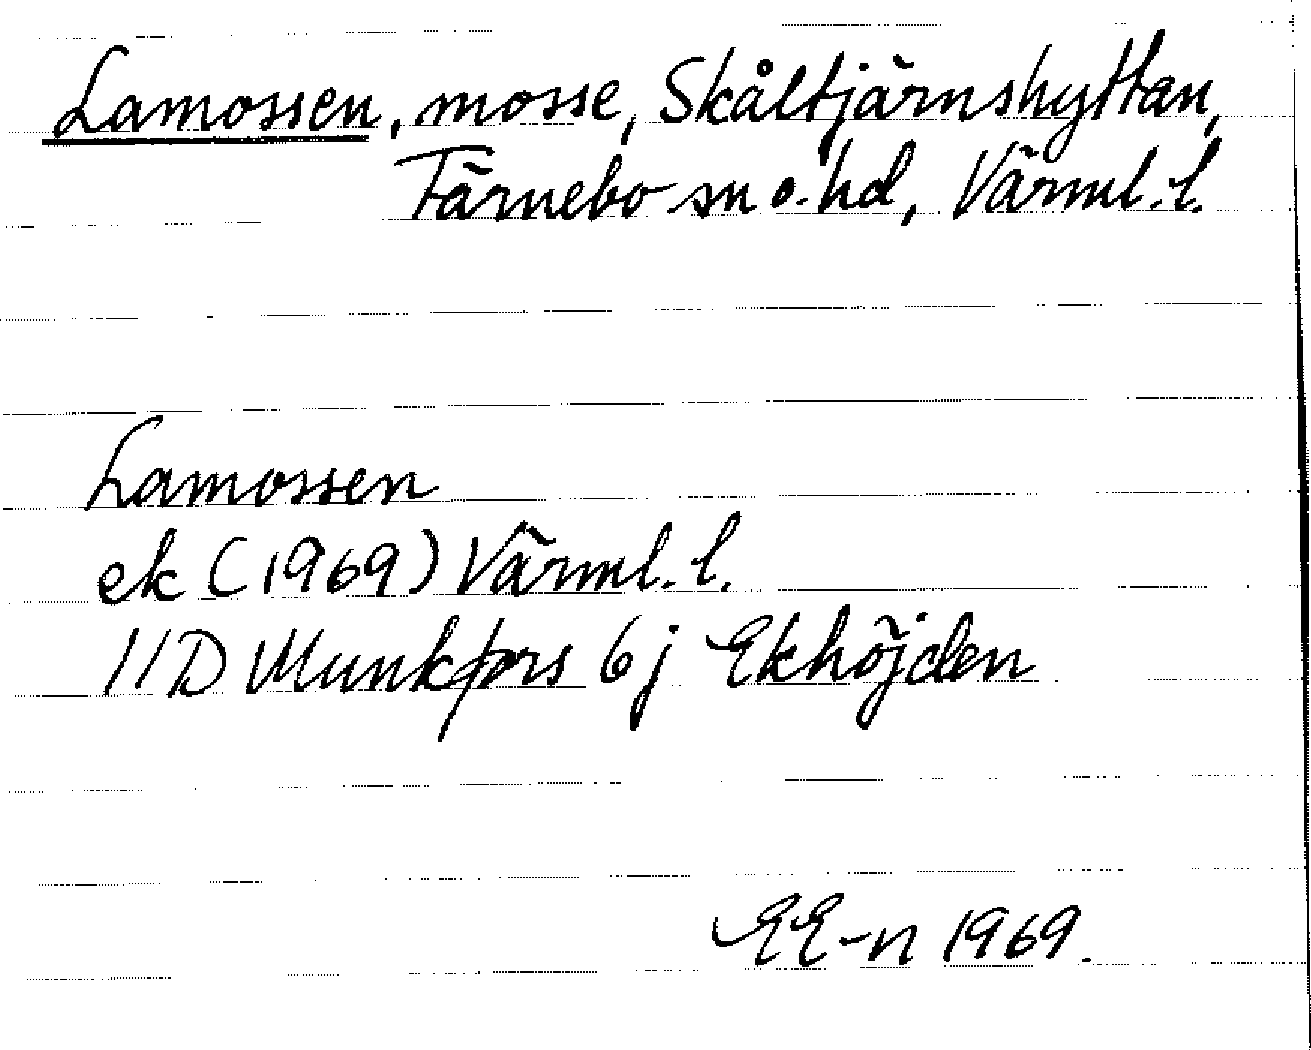 Lamossen, mosse, Skåltjärnshyttan,
Färnebo sn o. hd, Värml. l.
Lamossen
ek (1969) Värml. l.
11D Munkfors 6j Ekhöjden
EE-n 1969.